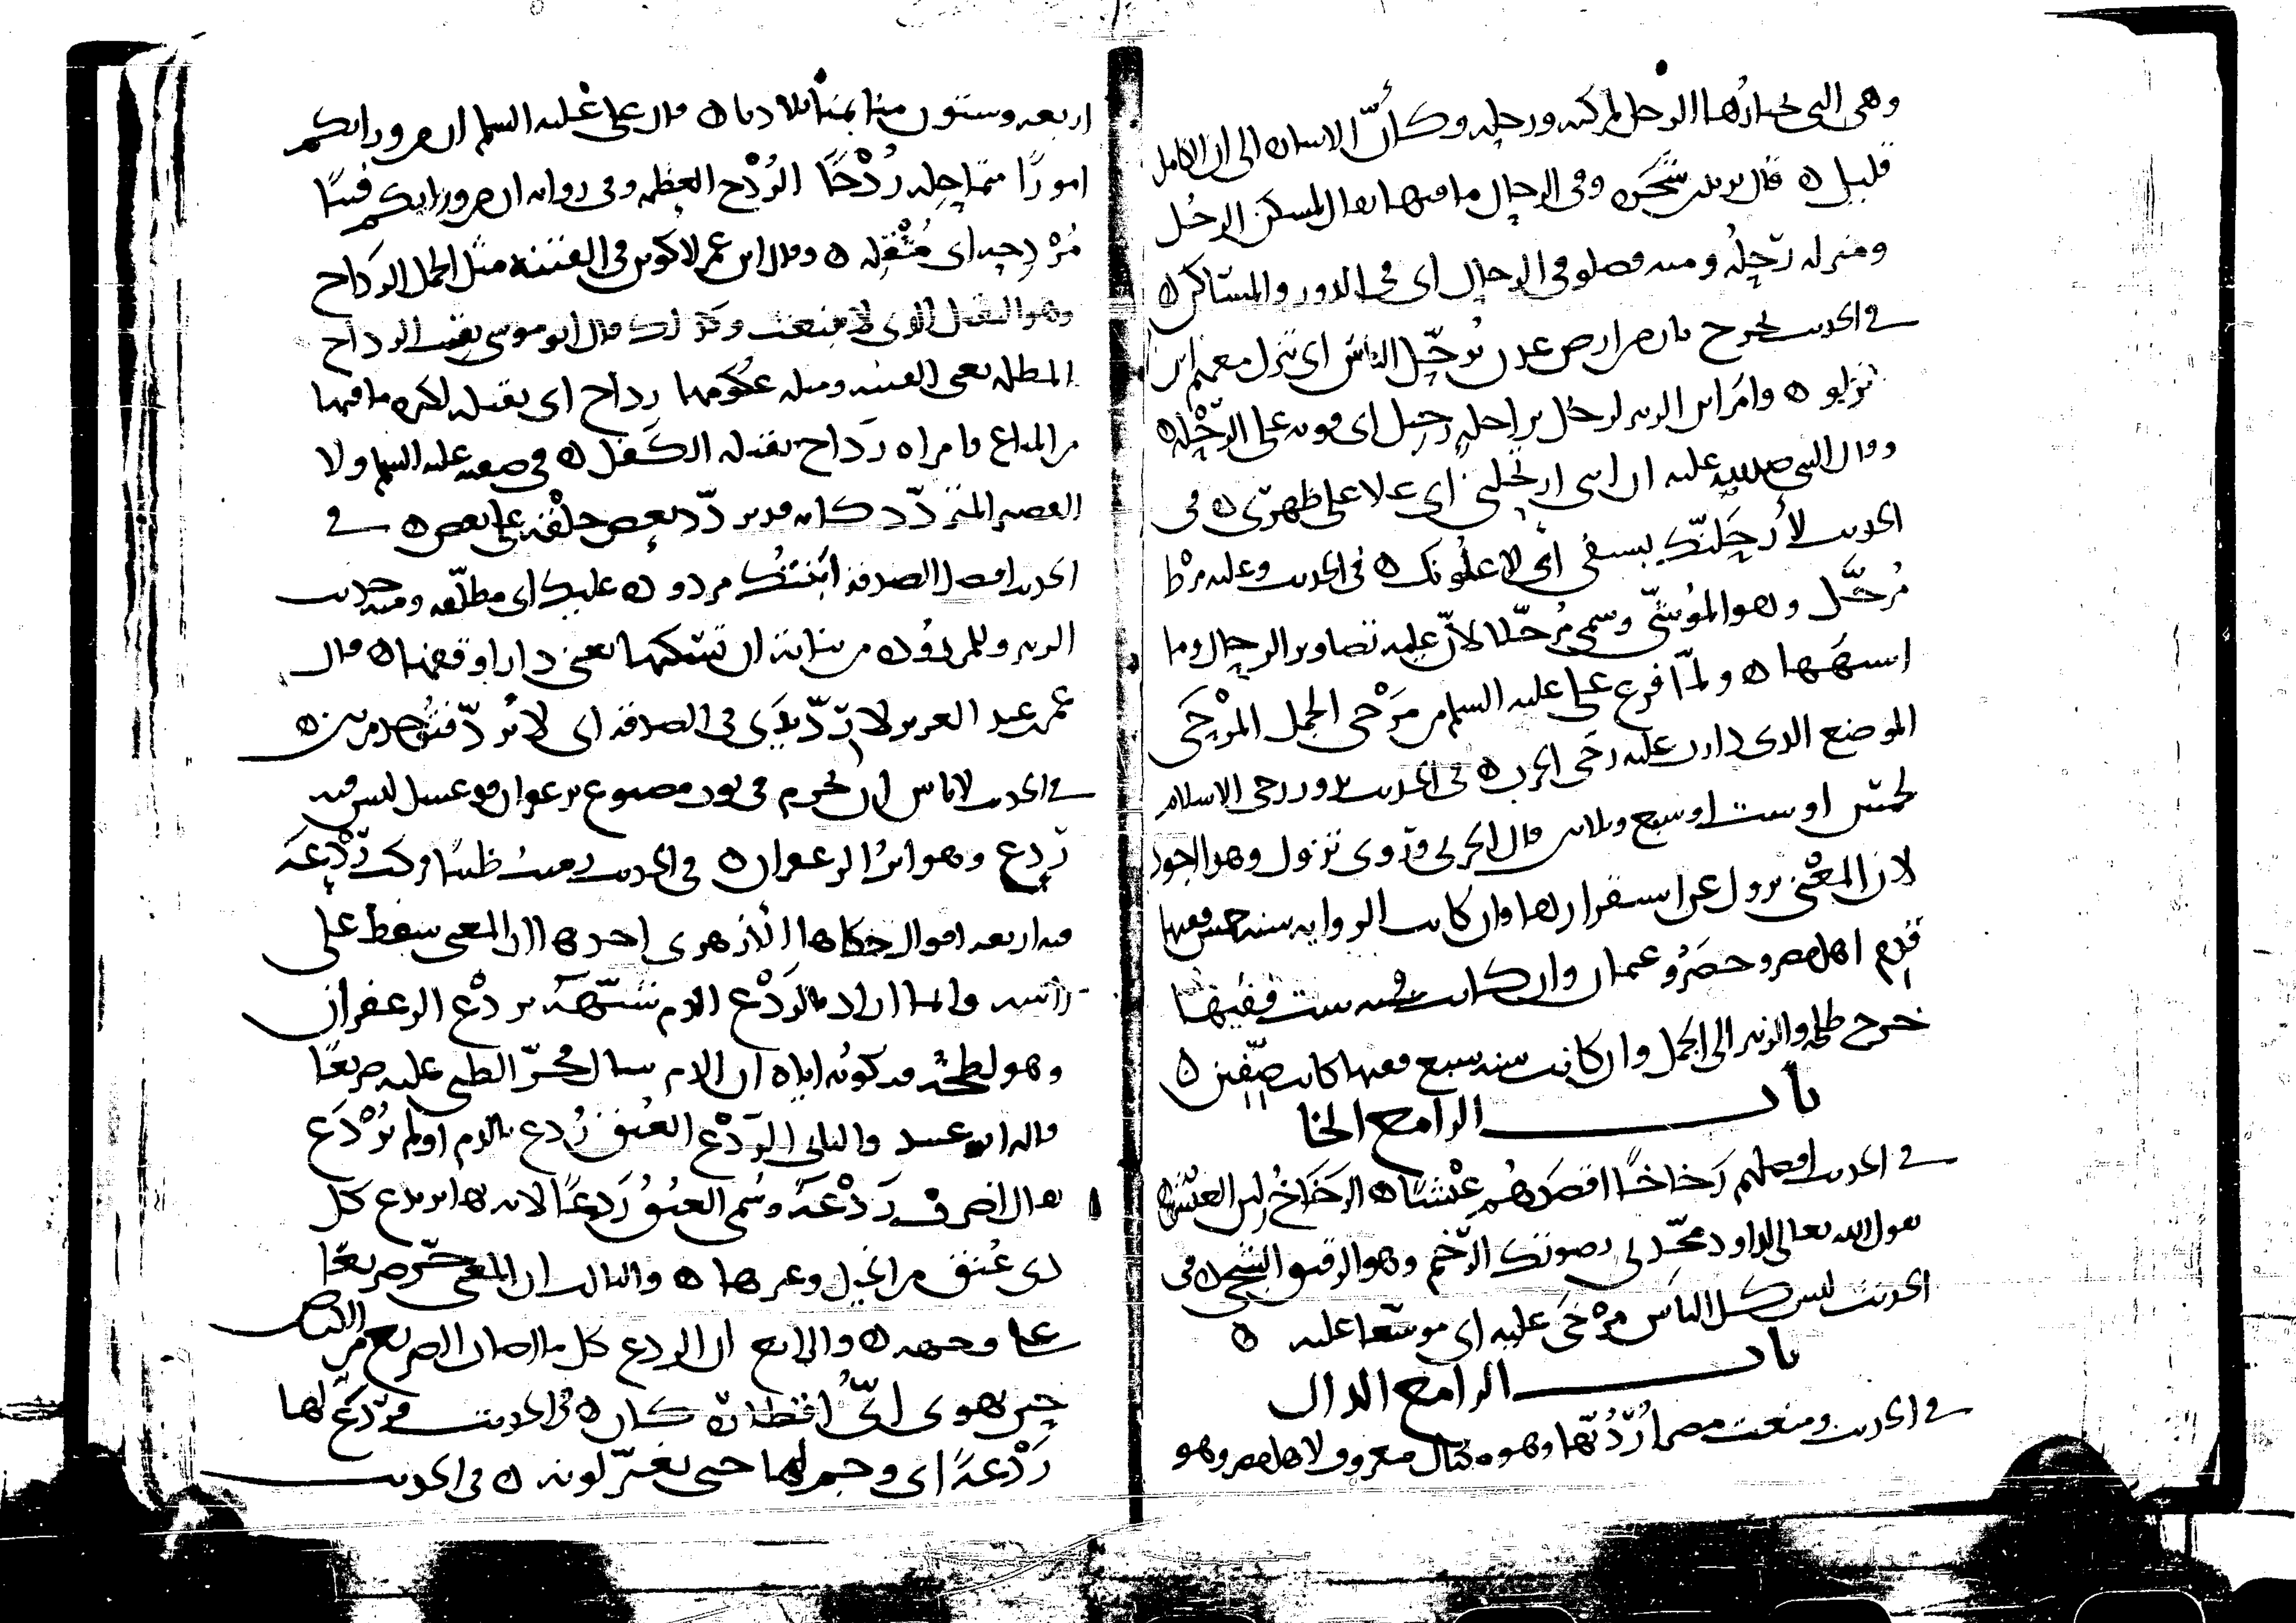 وهي التي يختارها الرجل لمركبه ورحله وكأن الانسان الى ان الكامل
قليل ه قال يزيد بن شجرة وفى الرحال ما فيها يقال لمسكن الرجل
ومنزله رحله ومنه فصلوا في الرحال اي في الدور والمساكن ه
في الحديث تخرج نار من ارض عدن ترحل الناس اي تنزل معهم اين
نزلوا ه وامر ابن الزبير لرجل براحلة رحيل اي قوية على الرحلة ه
وقال النبي صلى الله عليه ان ابني ارتحلني اي علا على ظهري ه في
الحديث لأرحلنك بسيفي اي لاعلونك ه في الحديث وعليه مرط
مرحل وهو الموشى وسمي مرحلا لان عليه تصاوير الرحال وما
اشبهها ه ولما فرغ علي عليه السلم من مرحى الجمل المرحى
الموضع الذي دارت عليه رحى الحرب ه في الحديث تدور رحى الاسلام
لخمس او ست او سبع وثلاثين قال الحربي وروي تزول وهو اجود
لان المعنى تزول عن استقرارها وان كانت الرواية سنه خمس ففيها
قدم اهل مصر وحصروا عثمان وان كانت سنه ست ففيها
خرج طلحة والزبير الى الجمل وان كانت سنه سبع ففيها كانت صفين ه
باب الرا مع الخا
في الحديث افضلهم رخاخا اقصدهم عيشا ه الرخاخ لين العيش ه
يقول الله تعالى لداود مجدني بصوتك الرخيم وهو الرقيق الشجي ه في
الحديث ليس كل الناس مرخى عليه اي موسعا عليه ه
باب الرا مع الدال
في الحديث ومنعت مصر اردبها وهو مكيال معروف لاهل مصر وهو
اربعه وستون منا بمنا بلادنا ه قال علي عليه السلم ان من ورائكم
امورا متماحله ردحا الردح العظيمه وفي رواية ان من ورائكم فتنا
مردحه اي مثقله ه وقال ابن عمر لاكونن في الفتنه مثل الجمل الرداح
وهو الثقيل الذي لا ينبعث وكذلك قال ابو موسى بقيت الرداح
المظلمه يعني الفتنه ومثله عكومها رداح اي ثقيله لكثره ما فيها
من المتاع وامراه رداح ثقيله الكفل ه في صفته عليه السلم ولا
القصير المتردد كانه قد تردد بعض خلقه على بعض ه في
الحديث افضل الصدقة ابنتك مردودة عليك اي مطلقه ومنه حديث
الزبير وللمردوده من بناته ان تسكنها يعني دارا وقفها ه قال
عمر بن عبد العزيز لا رديدى في الصدقة اي لا ترد فتؤخذ مرتين ه
في الحديث لا باس ان يحرم في ثوب مصبوغ بزعفران قد غسل ليس فيه
ردع وهو اثر الزعفران ه في الحديث رميت ظبيا فركب ردعه
فيه اربعه اقوال حكاها الازهري احدها ان المعنى سقط على
راسه وانما اراد بالردع الدم شبهه بردع الزعفران
وهو لطخه وركوبه اياه ان الدم سال فخر الظبي عليه صريعا
قاله ابو عبيد والثاني الردع العنق ردع بالدم او لم يردع
يقال اضرب ردعه وسمي العنق ردعا لانه بها يرتدع كل
ذي عنق من الخيل وغيرها ه والثالث ان المعنى خر صريعا
على وجهه ه والرابع ان الردع كل ما اصاب الصريع من الارض
حين يهوي اي اقطاره كان ه في الحديث فردع لها
ردعة اي وجم لها حتى تغير لونه ه في الحديث